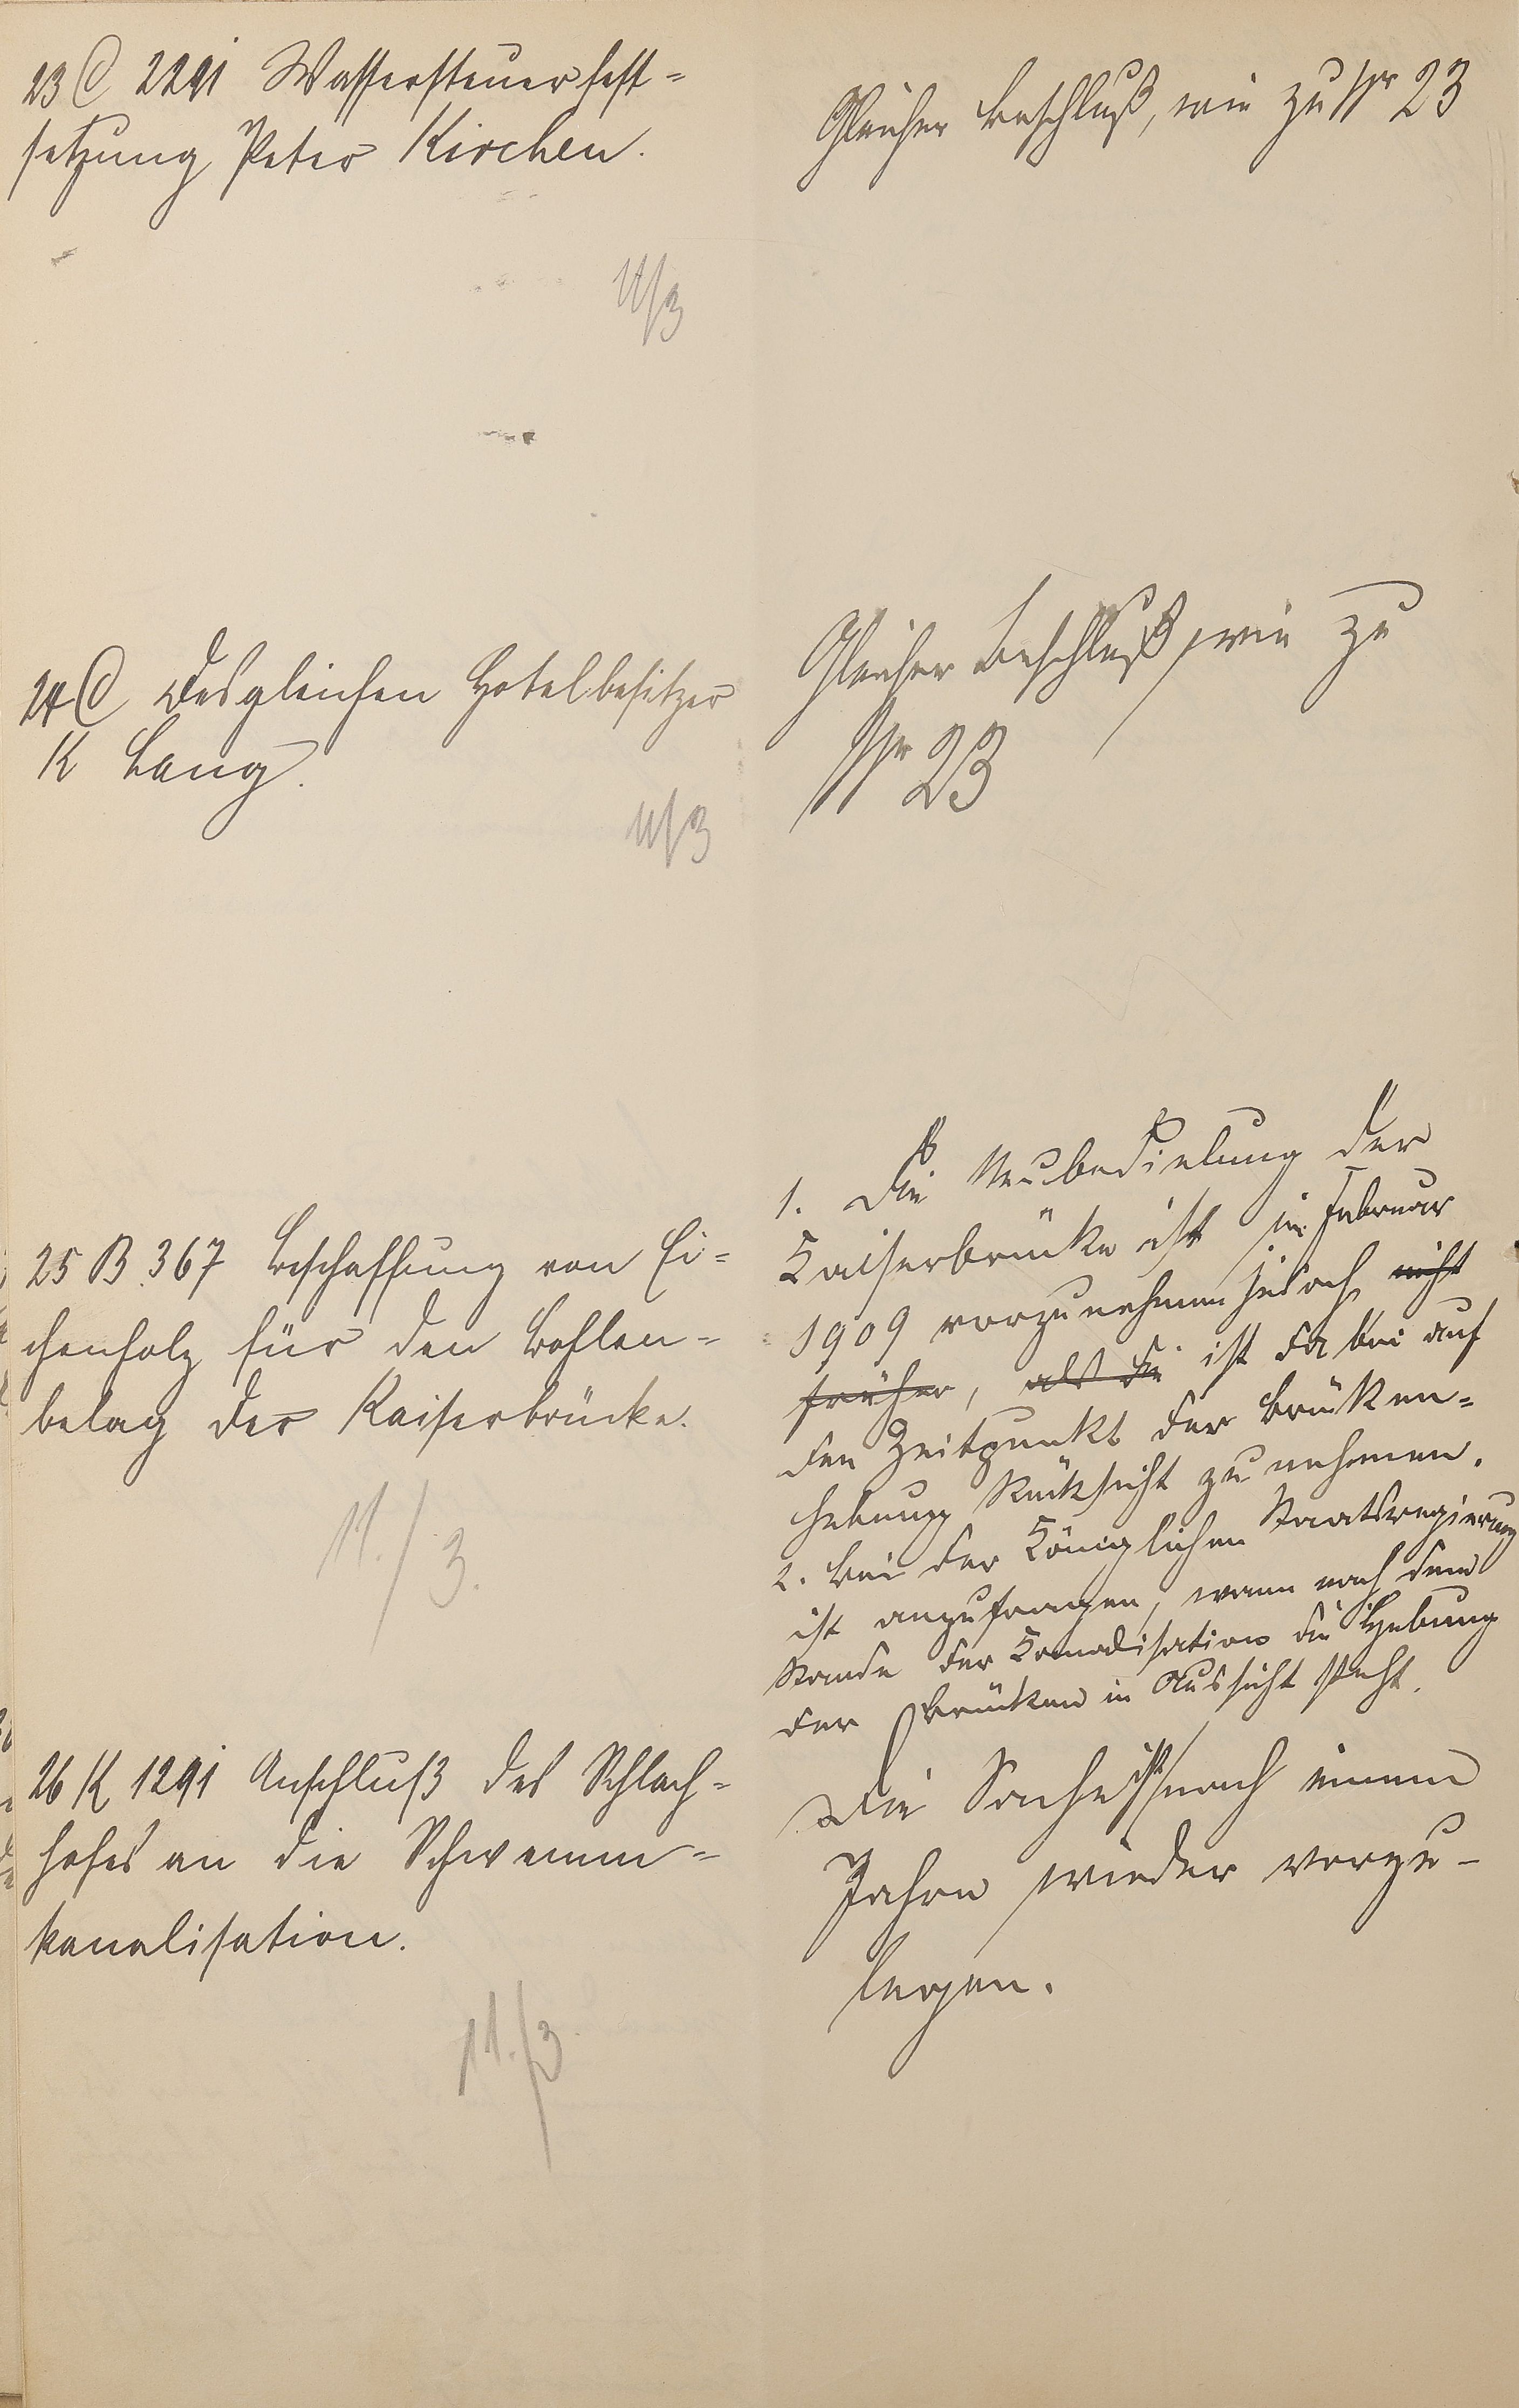 23 C 2291 Wassersteuerfest=
setzung Peter Kirchen.
Gleicher Beschluß, wie zu Nr 23
11/3
24 C Desgleichen Hotelbesitzer
K Lang.
11/3
Gleicher Beschluß, wie zu
Nr 23
25 B. 367 Beschaffung von Ei=
chenholz für den Bohlen=
belag der Kaiserbrücke.
11./3.
1. Die Neubedielung der
Kaiserbrücke ist im Februar
1909 vorzunehmen jedoch nicht
früher, als die ist dabei auf
den Zeitpunkt der Brücken=
hebung Rücksicht zu nehmen.
2. Bei der Königlichen Staatsregierung
ist anzufragen, wann nach dem
Stande der Kanalisation die Hebung
der Brücken in Aussicht steht.
26 K 1291 Anschluß des Schlach=
hofes an die Schwemm=
kanalisation.
11./3.
Die Sache ist nach einem
Jahre wieder vorzu-
legen.